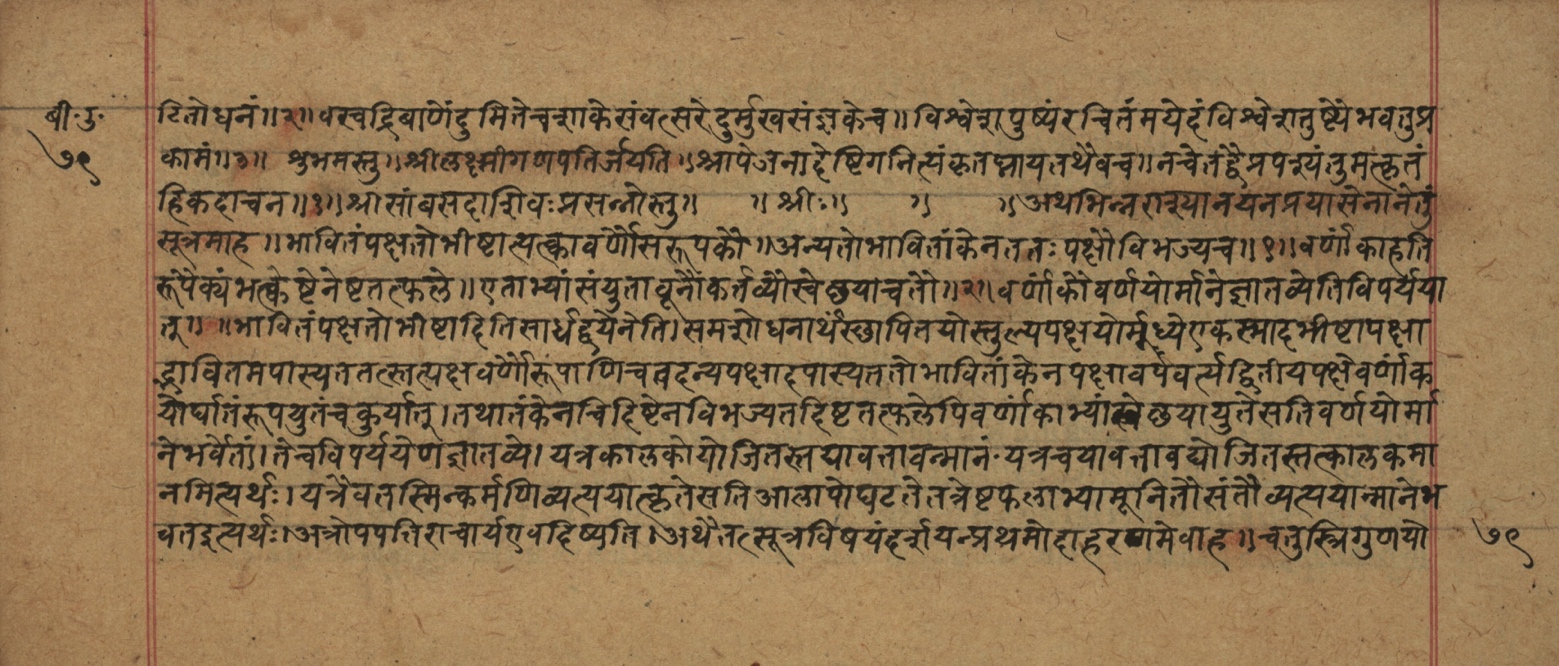 बी.उ.
७९
टितोधनं॥२॥वस्वद्रिबाणेंदुमितेचशाकेसंवत्सरेदुर्मुखसंज्ञकेच॥विश्वेशपुष्यंरचितंमयेदंविश्वेशतुष्ट्यैभवतुप्र
कामं॥३॥ शुभमस्तु॥श्रीलक्ष्मीगणपतिर्जयति॥ नित्यं तथैवच॥ मत्कृतं
हिकदाचन॥१॥श्रीसांबसदाशिवःप्रसन्नोस्तु॥ ॥श्रीः॥ ॥ ॥अथभिन्नराश्यानयनप्रयासेनानेतुं
सूत्रमाह॥भावितंपक्षतोभीष्टात्यत्कावर्णौसरूपकौ॥अन्यतोभावितांकेनततःपक्षौविभज्यच॥१॥वर्णांकाहति
रूपैक्यंभत्केष्टेनेष्टतत्फले॥एताभ्यांसंयुतावूनौकर्तव्यौस्वेछयाचतौ॥२॥वर्णांकौवर्णयोर्मानेज्ञातव्येतिविपर्यया
त्॥ ॥भावितंपक्षतोभीष्टादितिसार्धद्वयेनेति।समशोधनार्थंस्छापितयोस्तुल्यपक्षयोर्मध्येएकस्मादभीष्टापक्षा
द्भावितमपास्यततत्स्तत्पक्षवर्णौरूपाणिचतदन्यपक्षादपास्यततोभावितांकेनपक्षावपवर्त्यद्वितीयपक्षेवर्णांक
योर्घातंरूपयुतंचकुर्यात्।तथातंकेनचिदिष्टेनविभज्यतदिष्टतत्फलेपिवर्णांकाभ्यांस्वेछयायुतेसतिवर्णयोर्मा
नेभवेतां।तेचविपर्ययेणज्ञातव्ये।यत्रकालकोयोजितस्तद्यावत्तावन्मानं.यत्रचयावत्तावद्योजितस्तत्कालकमा
नमित्यर्थः।यत्रैवतस्मिन्कर्मणिव्यत्ययात्कृतेसतिआलापोघटतेतत्रेष्टफलाभ्यामूनितौसंतौव्यत्ययान्मानेभ
वतइत्यर्थः।अत्रोपपत्तिराचार्यएवदिष्यति।अथैतत्सूत्रविषयंदर्शयन्प्रथमोदाहरणमेवाह॥चतुस्त्रिगुणयो
७९